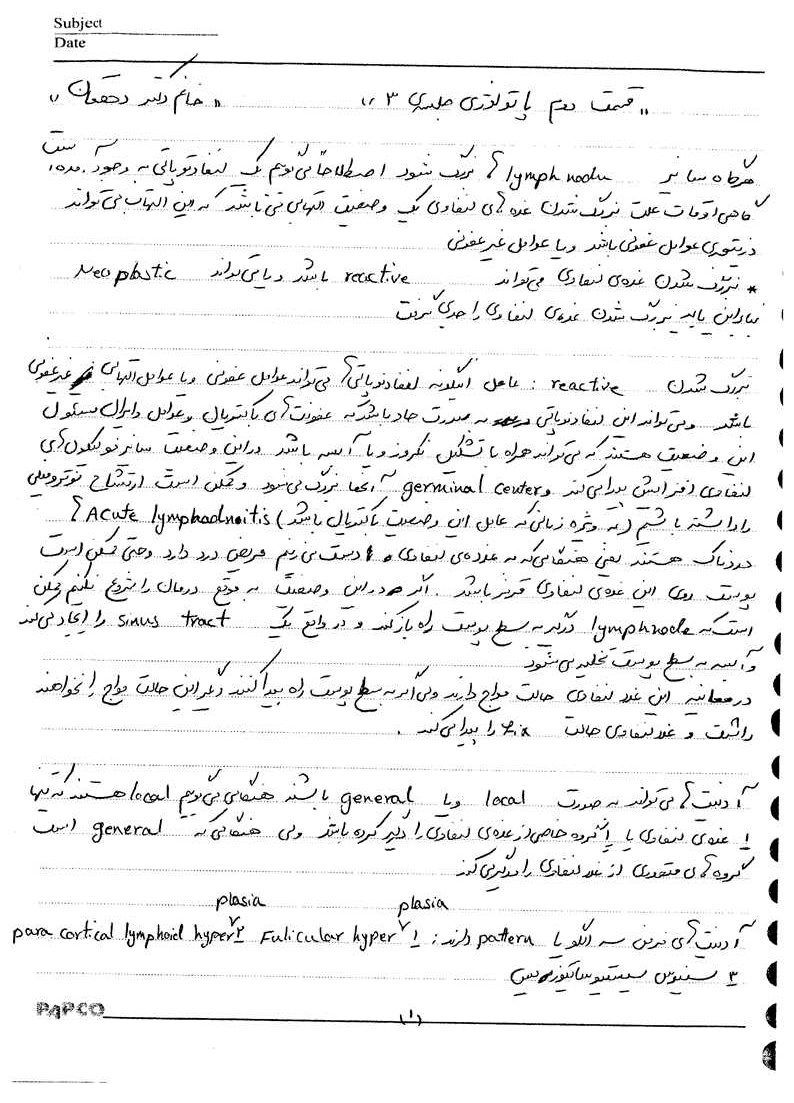 Subject
Date
"قسمت دوم پاتولوژی جلسه‌ی ۳" "خانم دکتر دهقان"
هرگاه سایز lymph node ها بزرگ شود اصطلاحاً می‌گوییم یک لنفادنوپاتی به وجود آمده است
گاهی اوقات علت بزرگ شدن غده‌های لنفاوی یک وضعیت التهابی می‌باشد که این التهاب می‌تواند
در تئوری عوامل عفونی باشد و یا عوامل غیرعفونی
* بزرگ شدن غده‌ی لنفاوی می‌تواند reactive باشد و یا می‌تواند Neoplastic
بنابراین باید بزرگ شدن غده‌ی لنفاوی را جدی گرفت
بزرگ شدن reactive : عامل اینگونه لنفادنوپاتی‌ها می‌تواند عوامل عفونی و یا عوامل التهابی غیرعفونی
باشد و می‌تواند این لنفادنوپاتی به صورت حاد باشد که عفونت‌های باکتریال و عوامل وایرال مسئول
این وضعیت هستند که می‌تواند همراه با تشکیل نکروز و یا آبسه باشد در این وضعیت سایز فولیکول‌های
لنفاوی افزایش پیدا می‌کند و germinal center آنها بزرگ می‌شود و ممکن است ارتشاح نوتروفیلی
را داشته باشیم (به ویژه زمانی که عامل این وضعیت باکتریال باشد) Acute lymphadnoitis ها
دردناک هستند یعنی هنگامی که به غده‌ی لنفاوی دست می‌زنیم مریض درد دارد و حتی ممکن است
پوست روی این غده‌ی لنفاوی قرمز باشد . اگر در این وضعیت به موقع درمان را شروع نکنیم ممکن
است که lymph node درگیر به سطح پوست راه باز کند و در واقع یک sinus tract را ایجاد می‌کند
و آبسه به سطح پوست تخلیه می‌شود
در معاینه این غدد لنفاوی حالت مواج دارند ولی اگر به سطح پوست راه پیدا کنند دیگر این حالت مواج را نخواهند
داشت و غدد لنفاوی حالت fix را پیدا می‌کند .
آدنیت‌ها می‌تواند به صورت local و یا general باشند هنگامی می‌گوییم local هستند که تنها
۱ غده‌ی لنفاوی یا ۱ گروه خاصی از غده‌ی لنفاوی را درگیر کرده باشد ولی هنگامی که general است
گروه‌های متعددی از غدد لنفاوی را درگیر می‌کند
plasia plasia
آدنیت‌های مزمن سه الگو یا pattern دارند : ۱ Fulicular hyper ۲ para cortical lymphoid hyper
۳ سینوس هیستیوسایتوزیس
PAPCO
(۱)